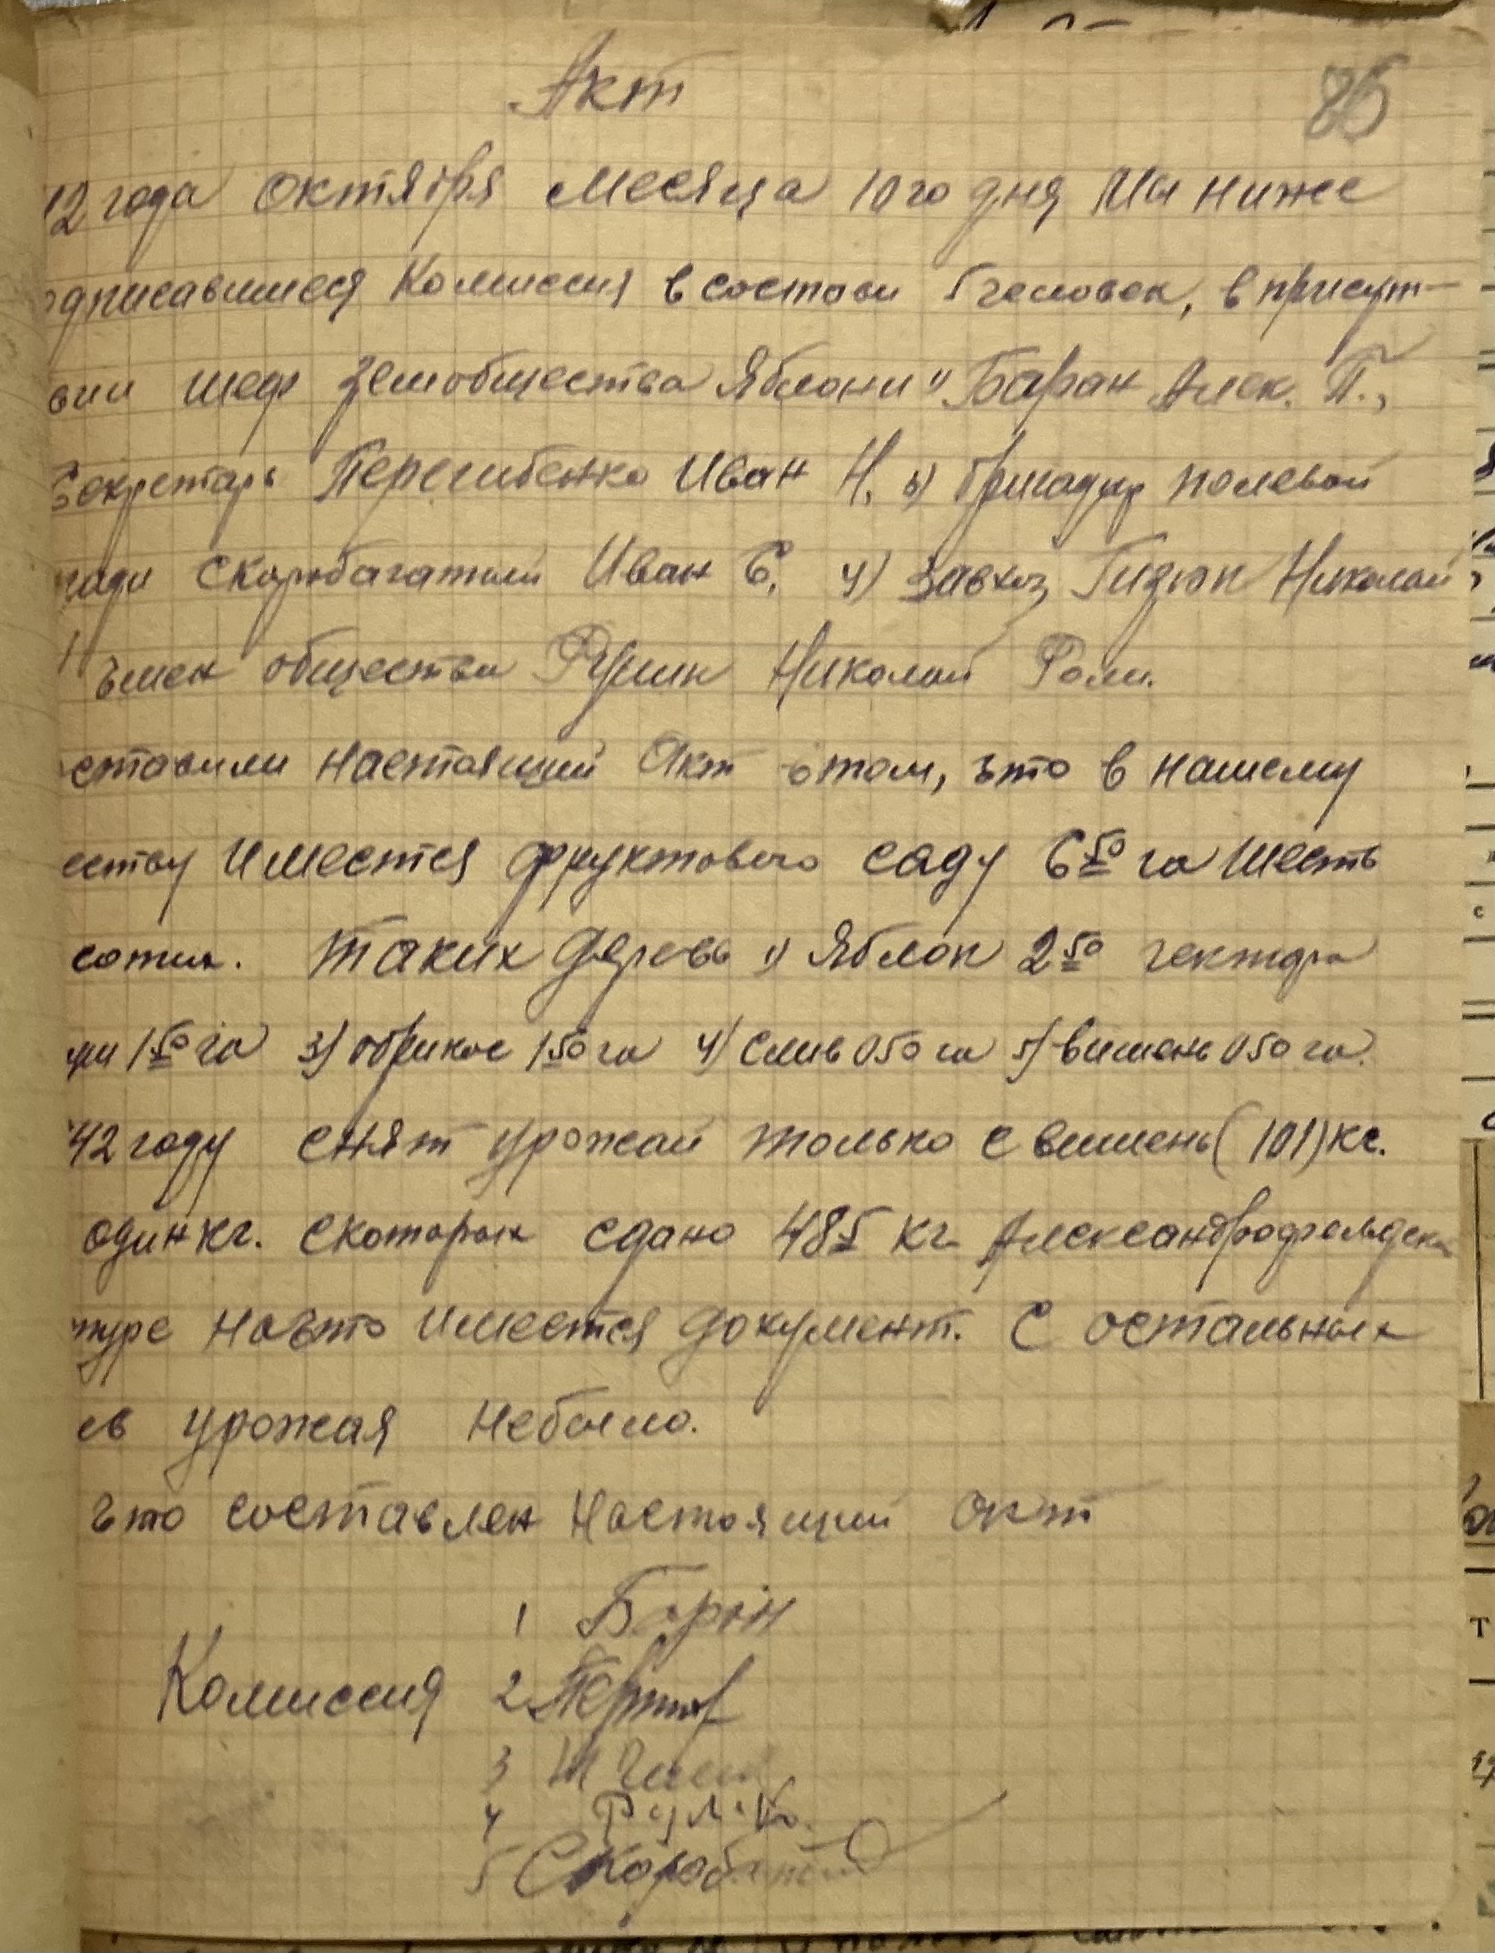 Акт
86
42 года октября месяца 10го дня Мы ниже
одписавшиеся Комиссия в состави 5 человек, в присут-
вии шеф Земобщества Яблони 1) Баран Алек. П.,
Секретарь Перегибенко Иван Н. 3) бригадир полевой
гади Скоробагатий Иван Е. 4) Завхоз Гидюк Николай
член общества Рулик Николай Ром.
ставили настоящий Акт отом, что в нашему
еству имеется фруктового саду 6 50 га шесть
сотих. таких дерев 1) Яблок 2 50 гектара
1 50 га 3) обрикос 1 50 га 4) слив 0 50 га 5) вишень 0 50 га.
42 году снят урожай только с вишень (101) кг.
один кг. скоторых сдано 485 кг Александрофельдск
туре начто имеется документ. С остальных
ев урожая небыло.
что составлен настоящий акт
1 Баран
Комиссия 2
3
4
5 Скоробагатий